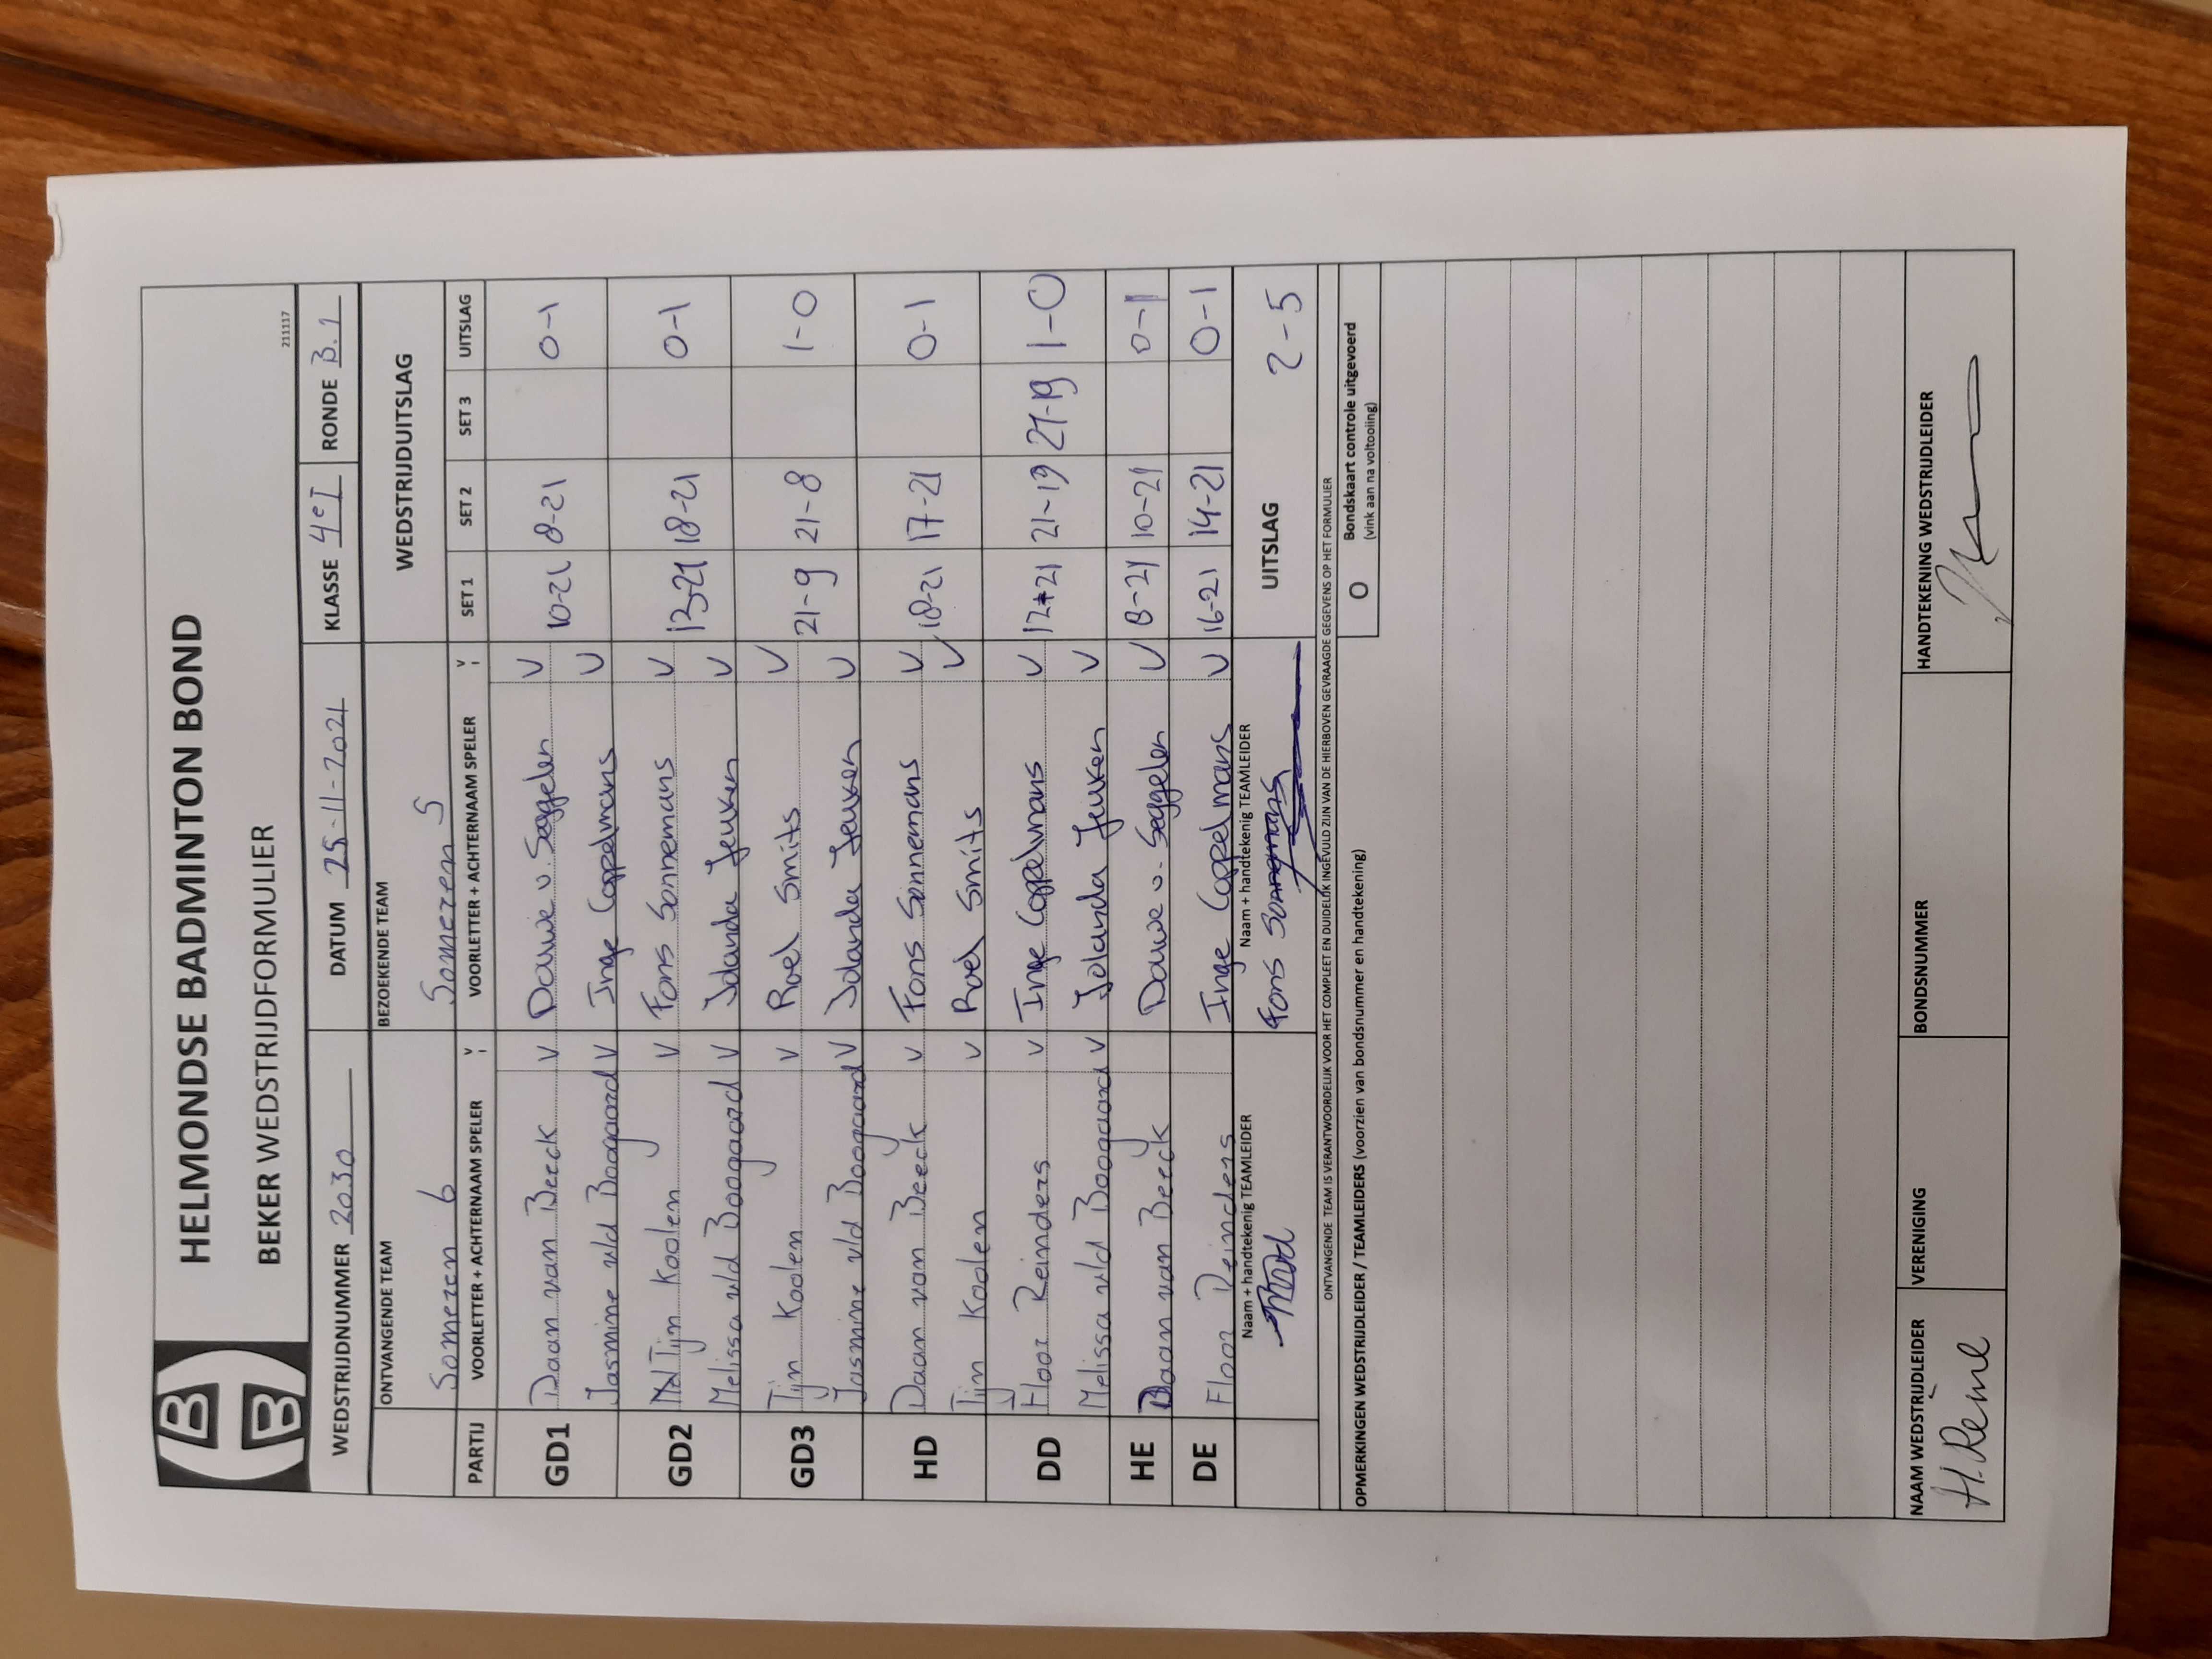 HELMONDSE BADMINTON BOND
BEKER WEDSTRIJDFORMULIER
211117
WEDSTRIJDNUMMER 2030 DATUM 25-11-2021 KLASSE 4e I RONDE B.1
ONTVANGENDE TEAM BEZOEKENDE TEAM WEDSTRIJDUITSLAG
Someren 6 Someren 5
PARTIJ VOORLETTER + ACHTERNAAM SPELER V VOORLETTER + ACHTERNAAM SPELER V SET 1 SET 2 SET 3 UITSLAG
GD1 Daan van Beeck V Douwe v. Seggelen V 10-21 8-21 0-1
Jasmine v/d Boogaard V Inge Coppelmans V
GD2 Tijn Koolen V Fons Sonnemans V 13-21 18-21 0-1
Melissa v/d Boogaard V Jolanda Jeuken V
GD3 Tijn Koolen V Roel Smits V 21-9 21-8 1-0
Jasmine v/d Boogaard V Jolanda Jeuken V
HD Daan van Beeck V Fons Sonnemans V 18-21 17-21 0-1
Tijn Koolen V Roel Smits V
DD Floor Reinders V Inge Coppelmans V 12-21 21-19 21-19 1-0
Melissa v/d Boogaard V Jolanda Jeuken V
HE Daan van Beeck Douwe v. Seggelen V 8-21 10-21 0-1
DE Floor Reinders Inge Coppelmans V 16-21 14-21 0-1
Naam + handtekenig TEAMLEIDER Naam + handtekenig TEAMLEIDER UITSLAG 2-5
Fons Sonnemans
ONTVANGENDE TEAM IS VERANTWOORDELIJK VOOR HET COMPLEET EN DUIDELIJK INGEVULD ZIJN VAN DE HIERBOVEN GEVRAAGDE GEGEVENS OP HET FORMULIER
OPMERKINGEN WEDSTRIJDLEIDER / TEAMLEIDERS (voorzien van bondsnummer en handtekening)
O Bondskaart controle uitgevoerd
(vink aan na voltooiing)
NAAM WEDSTRIJDLEIDER VERENIGING BONDSNUMMER HANDTEKENING WEDSTRIJDLEIDER